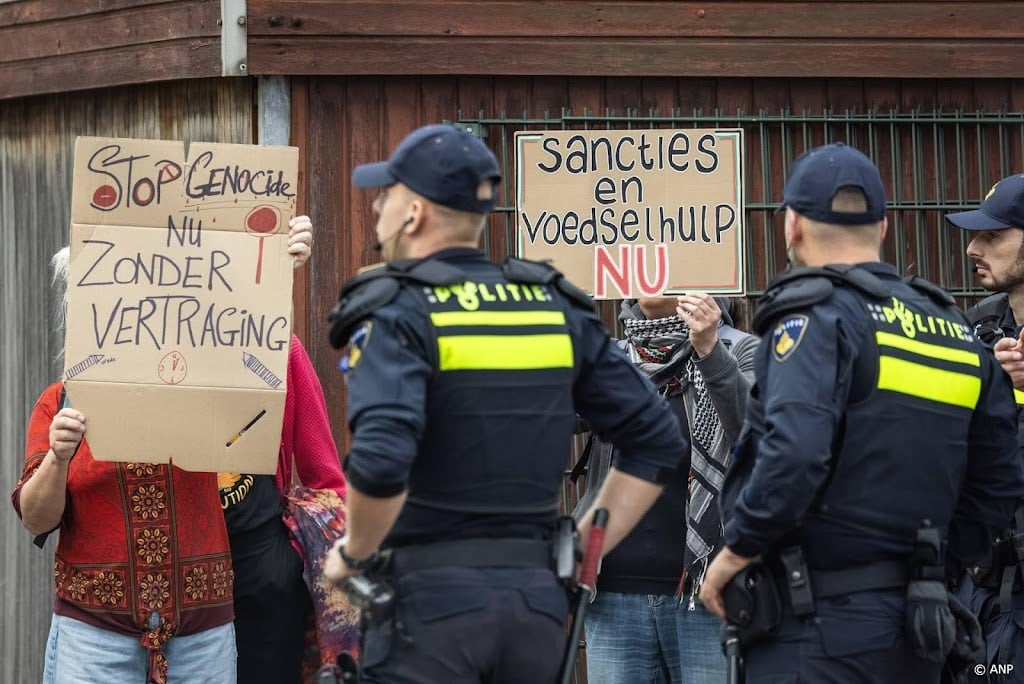 STOP GENOCIDE
NU
ZONDER
VERTRAGING
SANCTIES
en
VOEDSELHULP
NU
POLITIE
POLITIE
UTION
© ANP